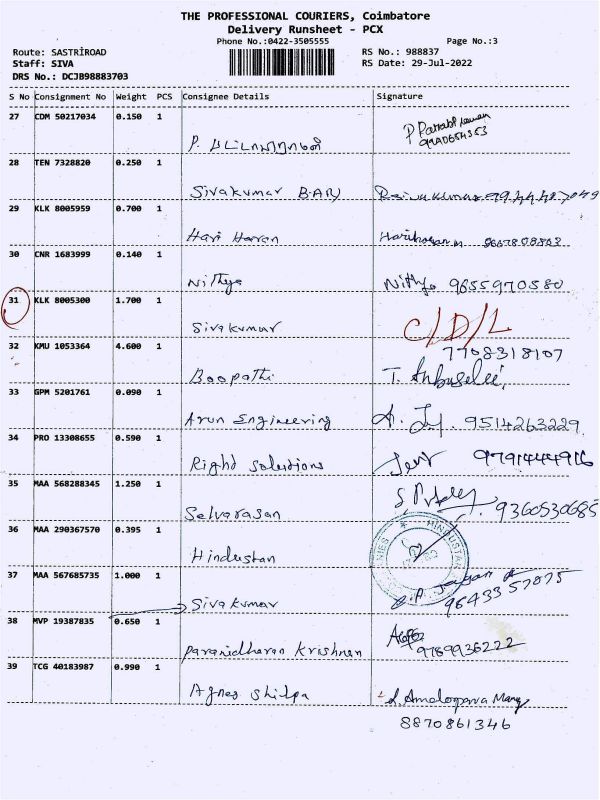 THE PROFESSIONAL COURIERS, Coimbatore
Delivery Runsheet - PCX
Phone No.:0422-3505555
Page No.:3
Route: SASTRIROAD
RS No.: 988837
Staff: SIVA
RS Date: 29-Jul-2022
DRS No.: DCJB98883703
S No Consignment No Weight PCS Consignee Details Signature
27 CDM 50217034 0.150 1
P. பட்டாபிராமன்
28 TEN 7328820 0.250 1
Sivakumar B.AR)
29 KLK 8005959 0.700 1
Hari Haran Hariharan
30 CNR 1683999 0.140 1
Nithya Nithya 9655970580
31 KLK 8005300 1.700 1
Sivakumar C/D/L
32 KMU 1053364 4.600 1 7708318107
Boopathi T.
33 GPM 5201761 0.090 1
Arun Engineering A. 9514263229
34 PRO 13308655 0.590 1
Right Solutions 9791444916
35 MAA 568288345 1.250 1
Selvarasan 9360530685
36 MAA 290367570 0.395 1
Hindustan HINDUSTAN
37 MAA 567685735 1.000 1
Sivakumar 9643357875
38 MVP 19387835 0.650 1
Paranidharan Krishnan 9789936222
39 TCG 40183987 0.990 1
Agnes Shilpa
8870861346